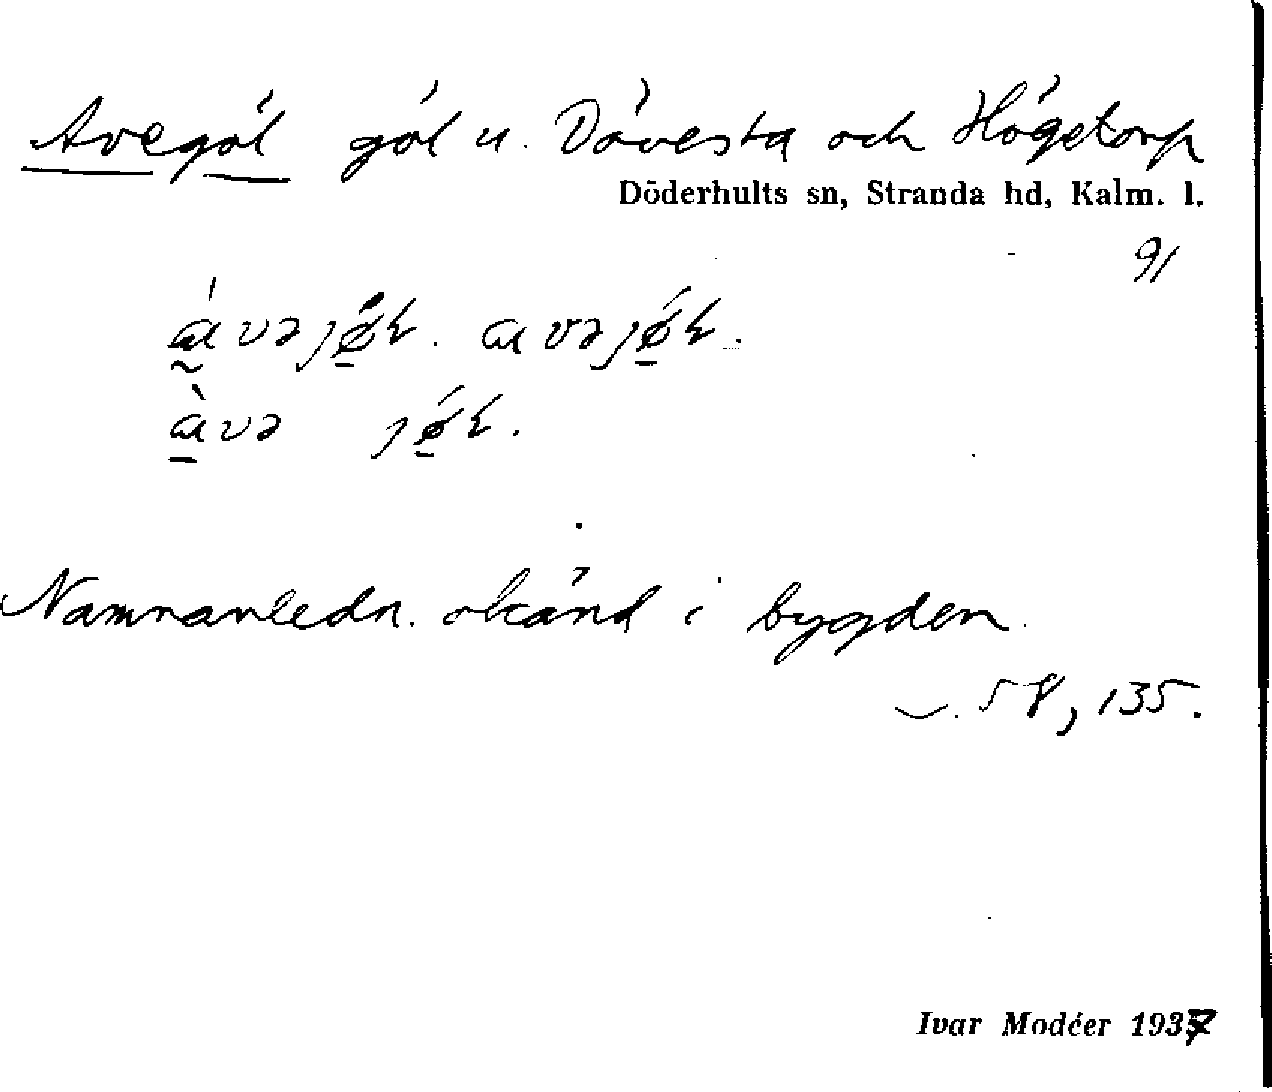 Avegöl göl u. Dövesta och Högetorp
Döderhults sn, Stranda hd, Kalm. l.
91
Namnanledn. okänd i bygden.
58, 135.
Ivar Modéer 1937